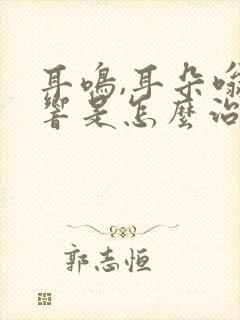 耳鳴,耳朵嗡
響是怎麼治
郭志恒